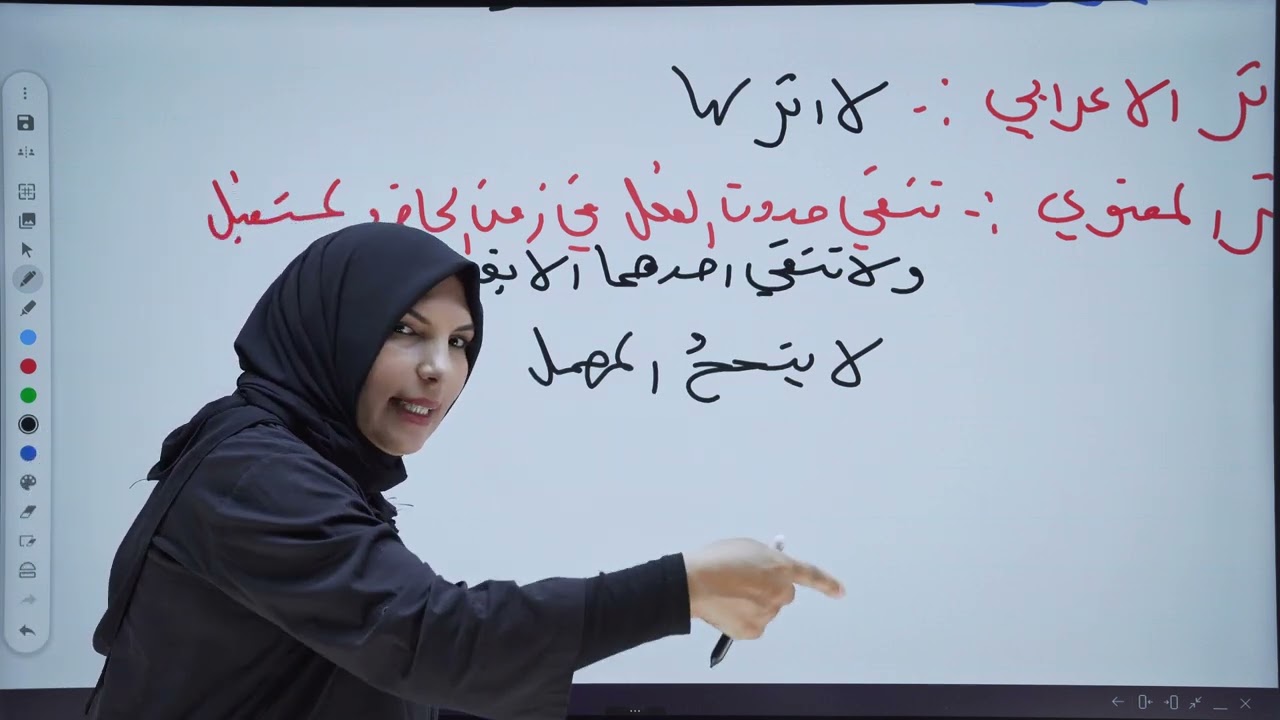 ثر الاعرابي :- لا اثر لها
ثر المعنوي :- تنفي حدوث الفعل في زمن الحاضر و المستقبل
ولا تنفي احدهما الا بق
لا ينجحُ المهمل